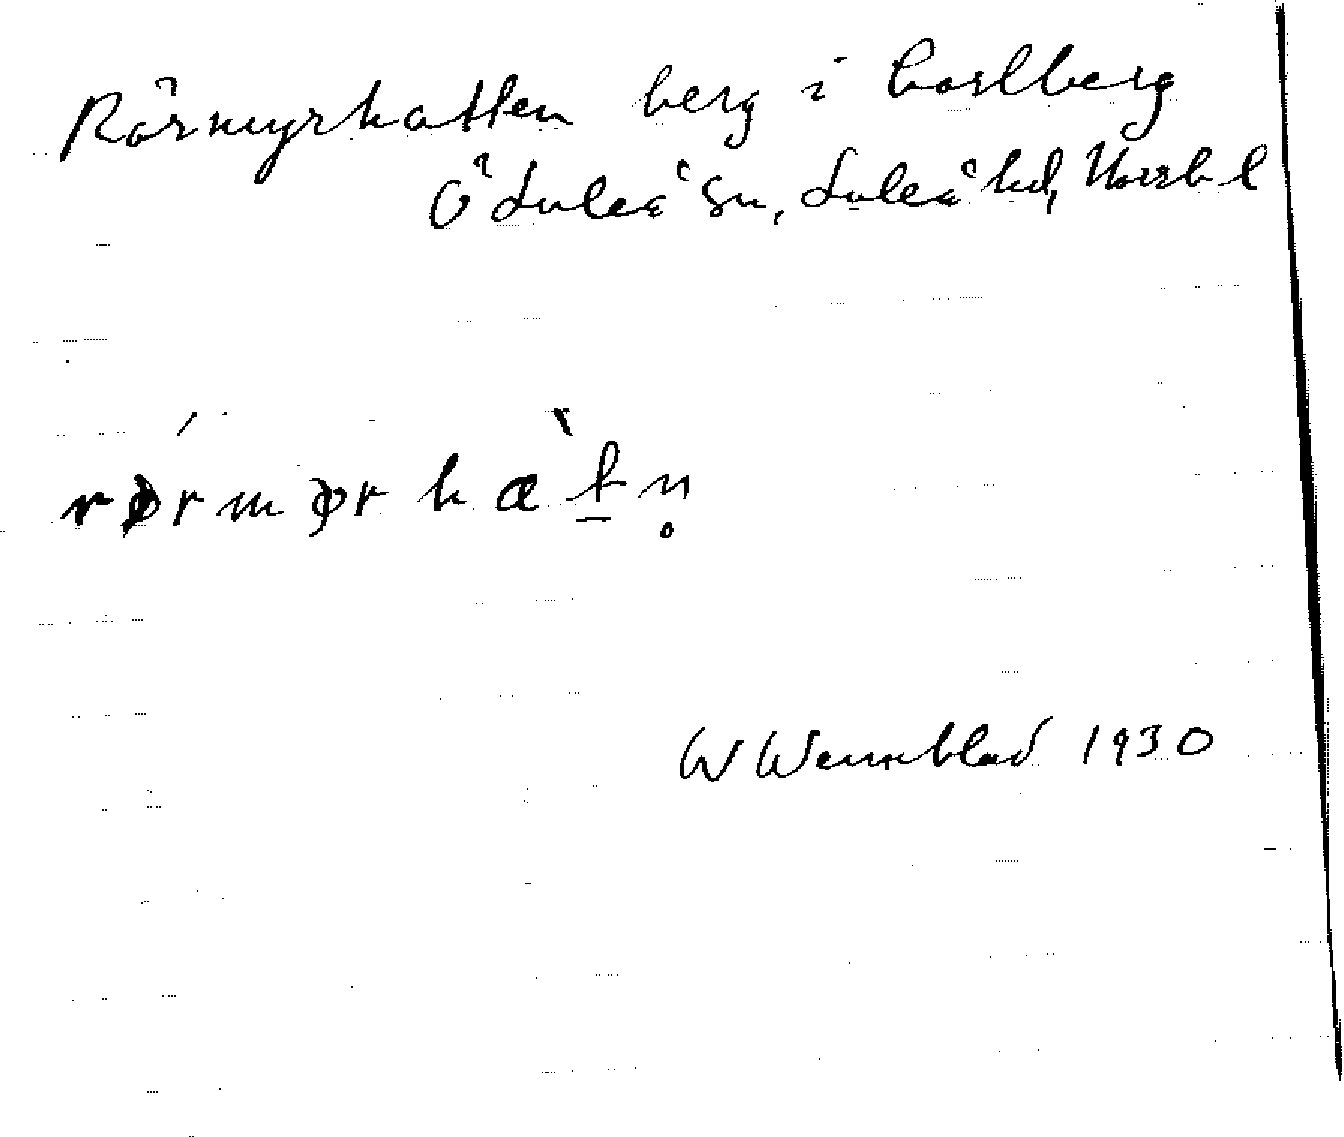 Rörmyrkatten berg i Carlberg
Ö Luleå Sn, Luleå hd, Norrb l
rørmørkæt̲n̥
W Wennblad 1930